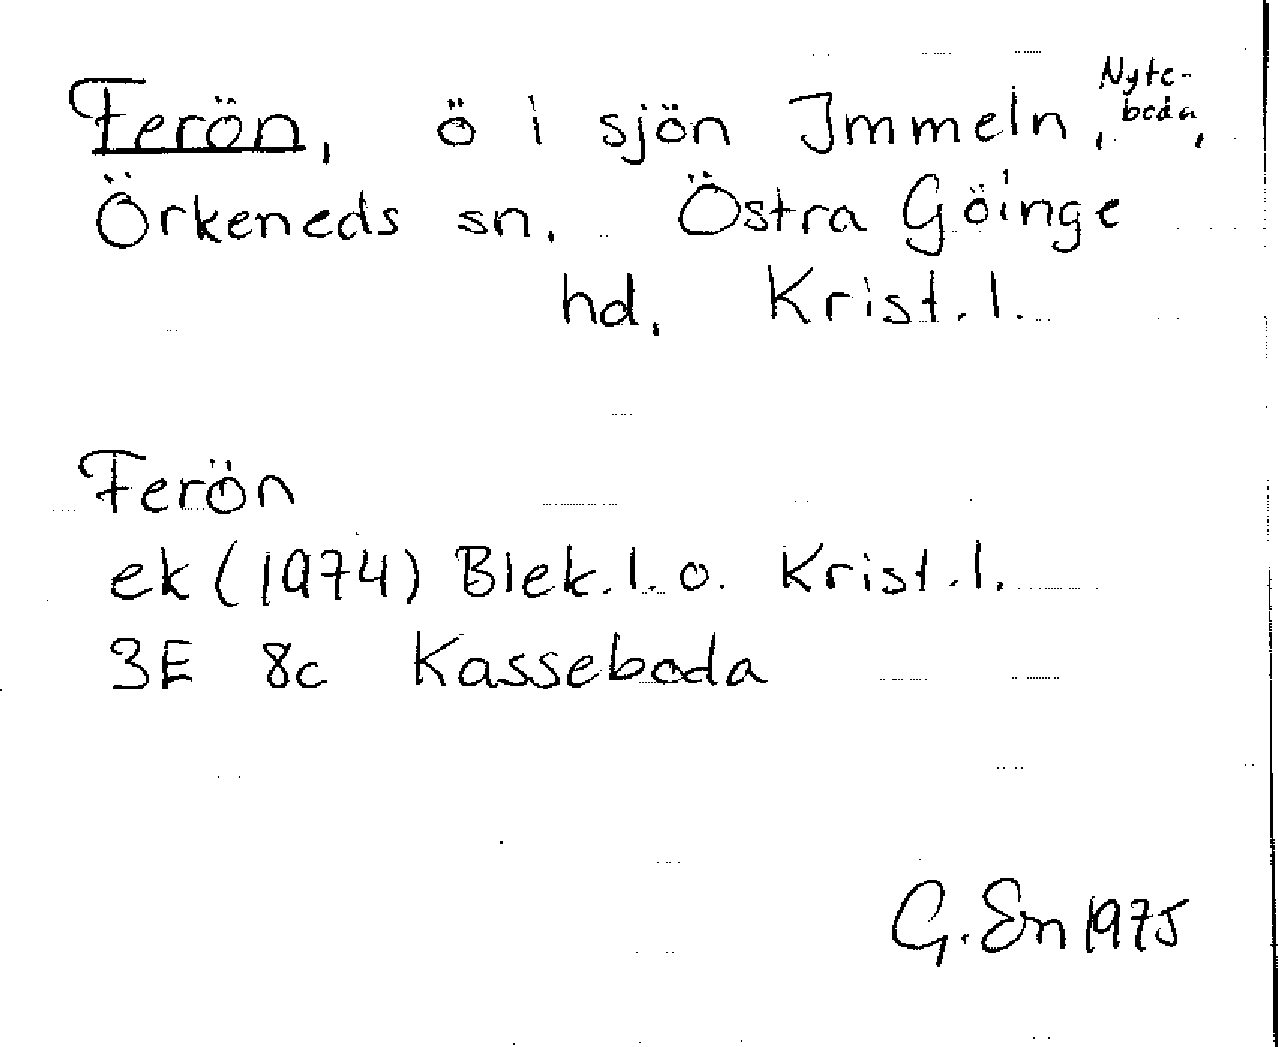 Ferön, ö i sjön Immeln, Nyte-
boda,
Örkeneds sn. Östra Göinge
hd. Krist. l.
Ferön
ek (1974) Blek. l. o. Krist. l.
3E 8c Kasseboda
G. En 1975